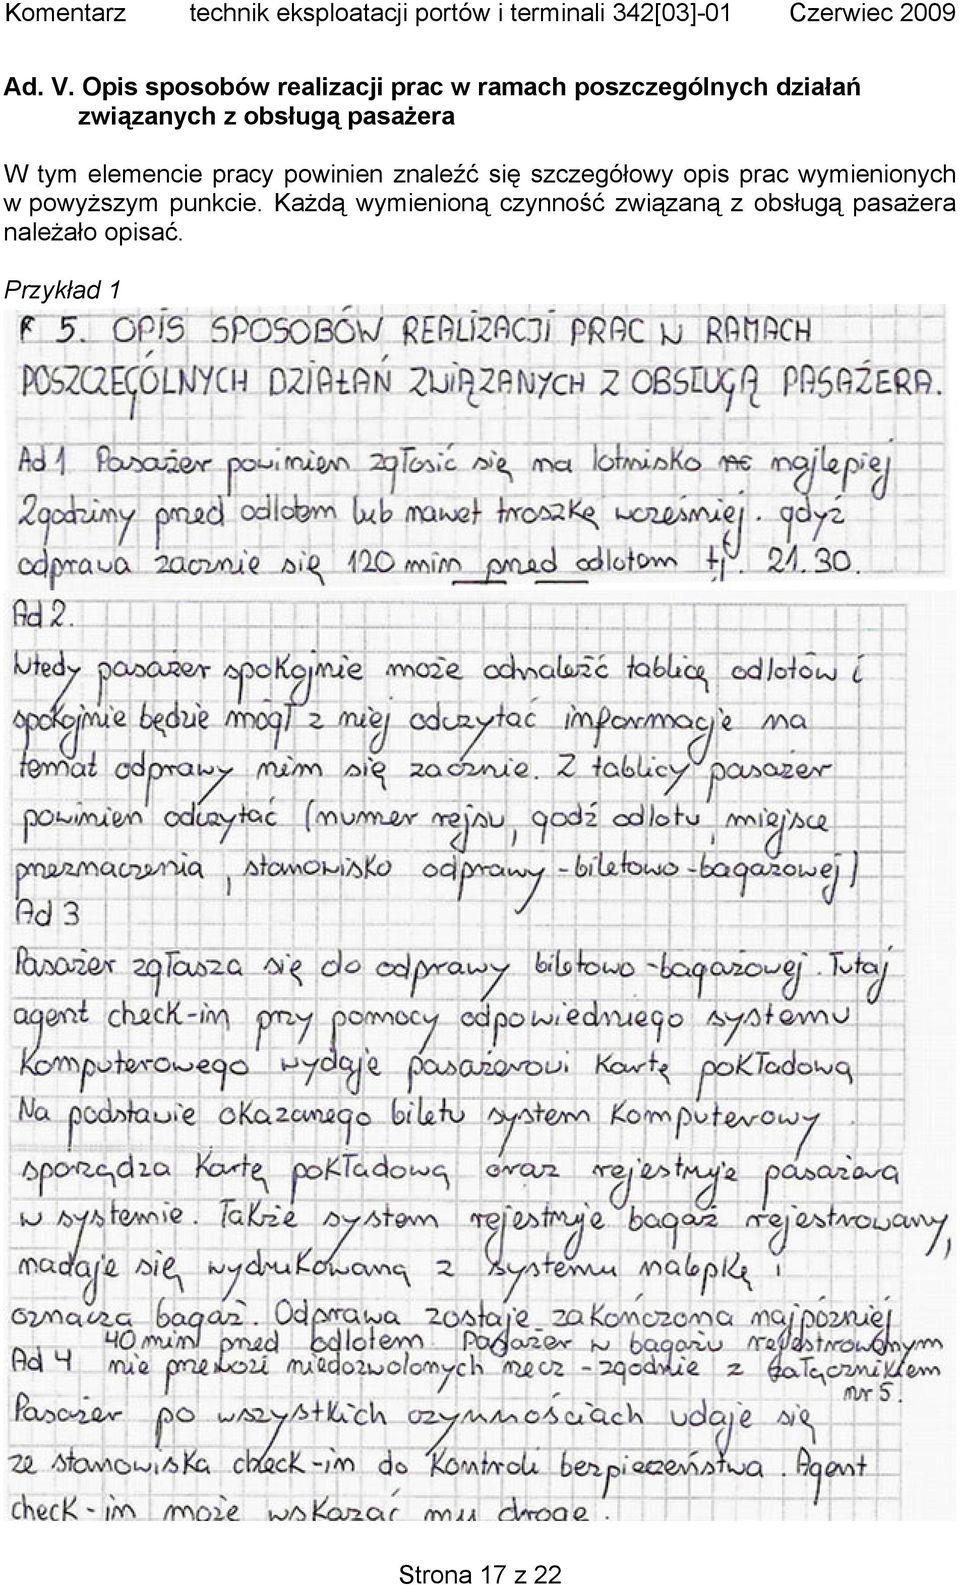 Komentarz technik eksploatacji portów i terminali 342[03]-01 Czerwiec 2009
Ad. V. Opis sposobów realizacji prac w ramach poszczególnych działań
związanych z obsługą pasażera
W tym elemencie pracy powinien znaleźć się szczegółowy opis prac wymienionych
w powyższym punkcie. Każdą wymienioną czynność związaną z obsługą pasażera
należało opisać.
Przykład 1
5. OPIS SPOSOBÓW REALIZACJI PRAC W RAMACH
POSZCZEGÓLNYCH DZIAŁAŃ ZWIĄZANYCH Z OBSŁUGĄ PASAŻERA.
Ad 1 Pasażer powinien zgłosić się na lotnisko najlepiej
2godziny przed odlotem lub nawet troszkę wcześniej. gdyż
odprawa zacznie się 120 min przed odlotem tj. 21.30.
Ad 2.
Wtedy pasażer spokojnie może odnaleźć tablicę odlotów i
spokojnie będzie mógł z niej odczytać informacje na
temat odprawy nim się zacznie. Z tablicy pasażer
powinien odczytać (numer rejsu, godź odlotu, miejsce
przeznaczenia, stanowisko odprawy-biletowo-bagażowej)
Ad 3
Pasażer zgłasza się do odprawy biletowo-bagażowej. Tutaj
agent check-in przy pomocy odpowiedniego systemu
komputerowego wydaje pasażerowi kartę pokładową
Na podstawie okazanego biletu system komputerowy
sporządza kartę pokładową oraz rejestruje pasażera
w systemie. Także system rejestruje bagaż rejestrowany,
nadaje się wydrukowaną z systemu nalepkę i
oznacza bagaż. Odprawa zostaje zakończona najpózniej
40 min przed odlotem. Pasażer w bagażu rejestrowanym
Ad 4 nie przewozi niedozwolonych rzecz - zgodnie z załącznikiem
nr 5.
Pasażer po wszystkich czynnościach udaje się
ze stanowiska check-in do kontroli bezpieczeństwa. Agent
check-in może wskazać mu drogę.
Strona 17 z 22